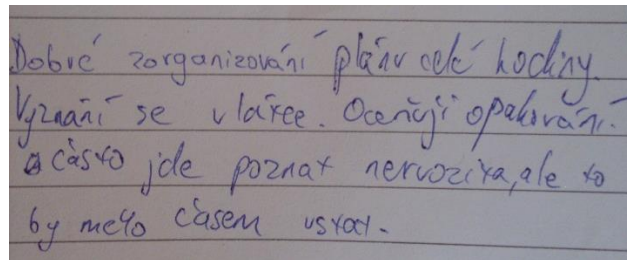 Dobré zorganizování plánu celé hodiny.
Vyznání se v látce. Oceňuji opakování.
Často jde poznat nervozita, ale to
by mělo časem ustat.